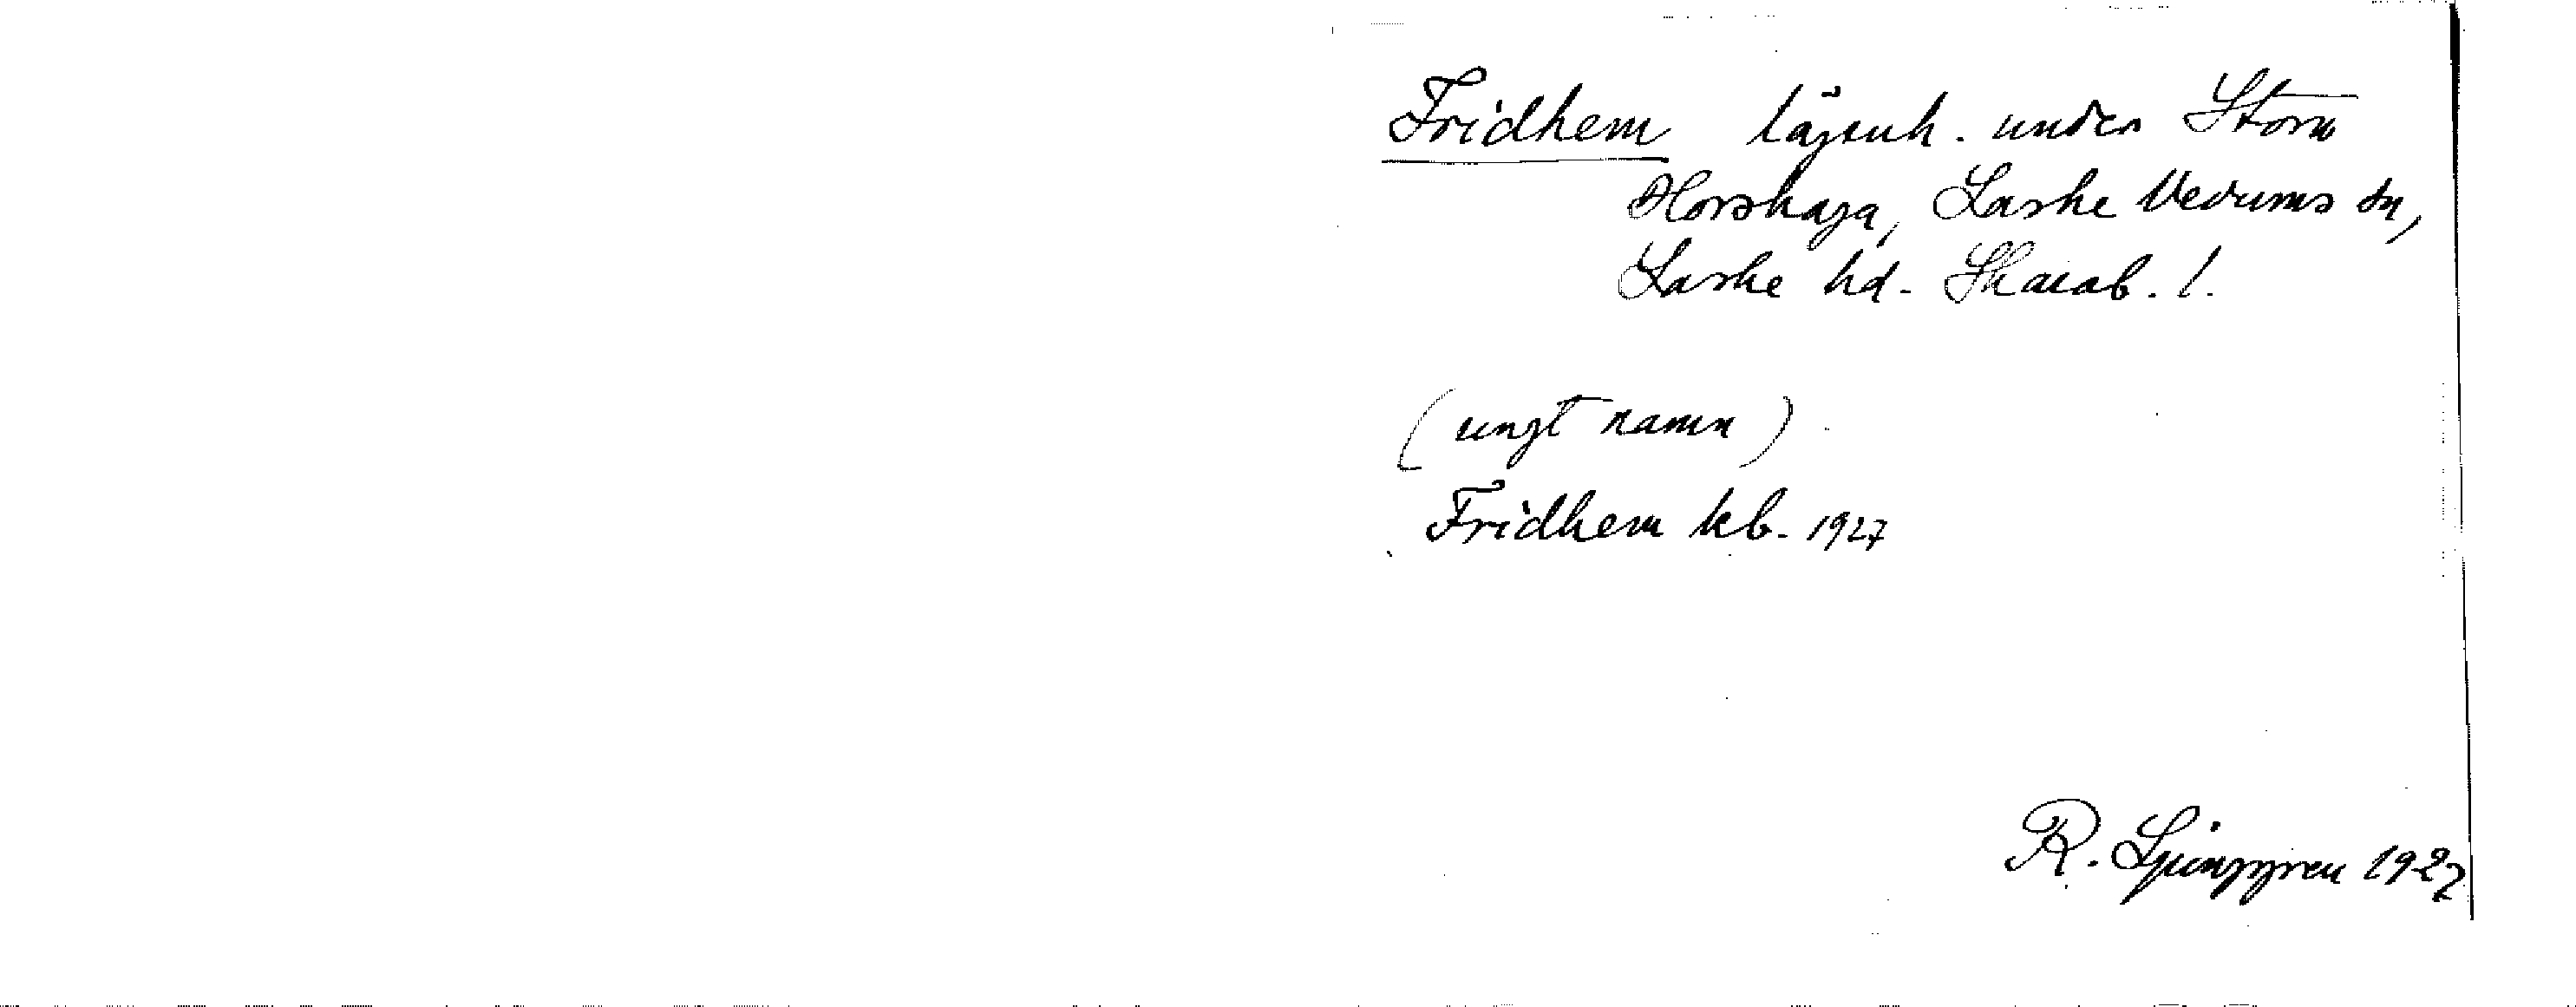 Fridhem lägenh. under Stora
Horshaga, Laske Vedums sn,
Laske hd. Skarab. l.
(ungt namn)
Fridhem kb. 1927
R. Ljunggren 1927